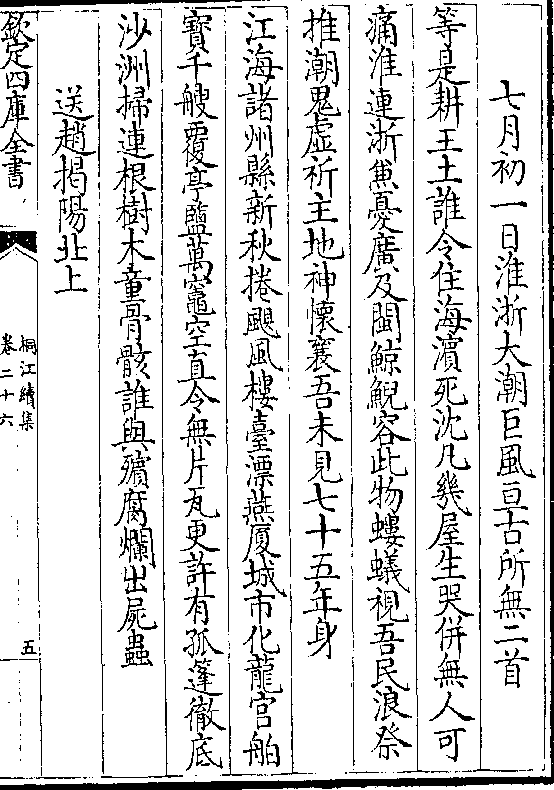 七月初一日淮浙大潮巨風亘古所無二首
等是耕王土誰令住海濱死沈凡幾屋生哭併無人可
痛淮連浙兼憂廣及閩鯨鯢容此物螻蟻視吾民浪祭
推潮鬼虛祈主地神懷襄吾未見七十五年身
江海諸州縣新秋捲颶風樓臺漂燕厦城市化龍宫舶
寶千艘覆亭鹽萬竈空直令無片瓦更許有孤篷徹底
沙洲掃連根樹木童骨骸誰與殯腐爛出屍蟲
送趙揭陽北上
欽定四庫全書
桐江續集
卷二十六
五